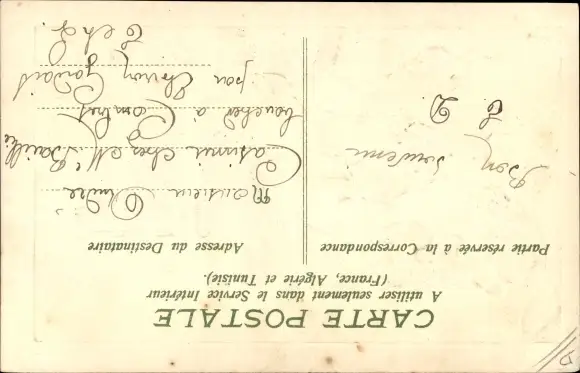 CARTE POSTALE
A utiliser seulement dans le Service Intérieur
(France, Algérie et Tunisie).
Partie réservée à la Correspondance
Adresse du Destinataire
Bon
souvenir
Monsieur André
Casimir chez Mr
boucher à Combret
par